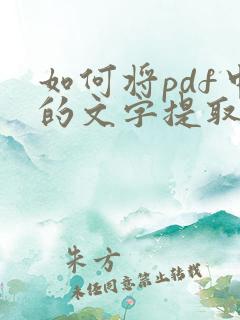 如何将pdf中
的文字提取
朱方
未经同意禁止转载